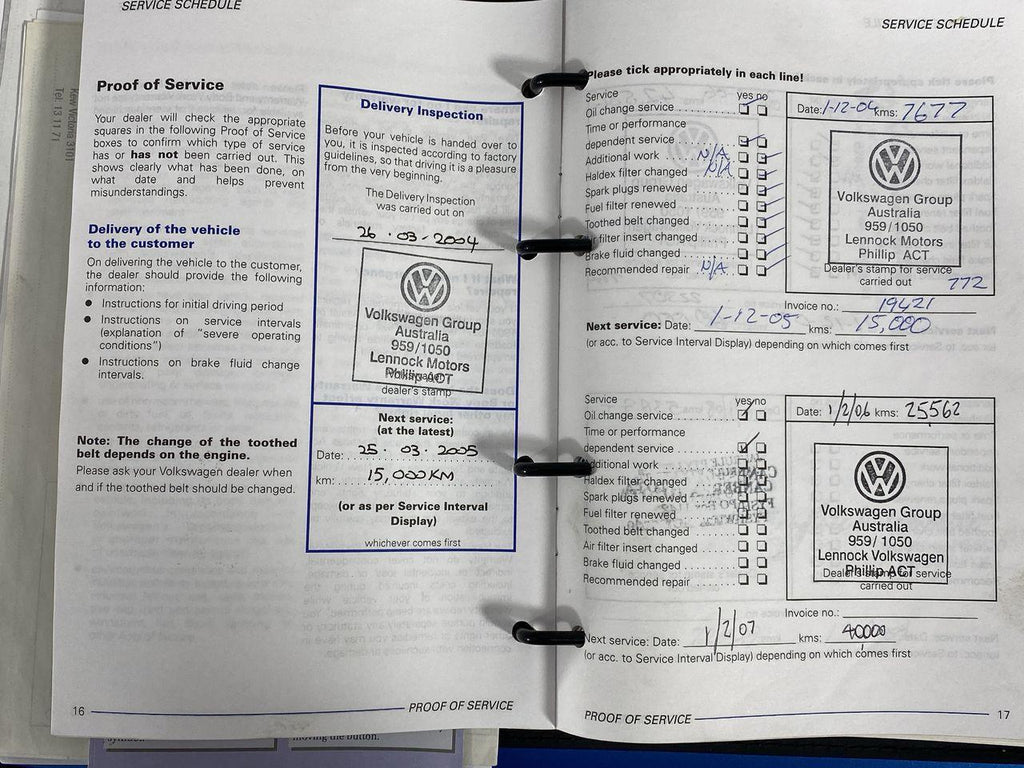 SERVICE SCHEDULE
Proof of Service
Your dealer will check the appropriate
squares in the following Proof of Service
boxes to confirm which type of service
has or has not been carried out. This
shows clearly what has been done, on
what date and helps prevent
misunderstandings.
Delivery of the vehicle
to the customer
On delivering the vehicle to the customer,
the dealer should provide the following
information:
● Instructions for initial driving period
● Instructions on service intervals
(explanation of "severe operating
conditions")
● Instructions on brake fluid change
intervals.
Note: The change of the toothed
belt depends on the engine.
Please ask your Volkswagen dealer when
and if the toothed belt should be changed.
Delivery Inspection
Before your vehicle is handed over to
you, it is inspected according to factory
guidelines, so that driving it is a pleasure
from the very beginning.
The Delivery Inspection
was carried out on
26 · 03 · 2004
Volkswagen Group
Australia
959/1050
Lennock Motors
Phillip ACT
dealer's stamp
Next service:
(at the latest)
Date: 25 · 03 · 2005
km: 15,000KM
(or as per Service Interval
Display)
whichever comes first
16
PROOF OF SERVICE
SERVICE SCHEDULE
Please tick appropriately in each line!
Service yes no
Oil change service
Time or performance
dependent service
Additional work N/A
Haldex filter changed N/A
Spark plugs renewed
Fuel filter renewed
Toothed belt changed
Air filter insert changed
Brake fluid changed
Recommended repair N/A
Date: 1-12-04 kms: 7677
Volkswagen Group
Australia
959/1050
Lennock Motors
Phillip ACT
Dealer's stamp for service
carried out 772
Invoice no.: 19421
Next service: Date: 1-12-05 kms: 15,000
(or acc. to Service Interval Display) depending on which comes first
Service yes no
Oil change service
Time or performance
dependent service
Additional work
Haldex filter changed
Spark plugs renewed
Fuel filter renewed
Toothed belt changed
Air filter insert changed
Brake fluid changed
Recommended repair
Date: 1/2/06 kms: 25562
Volkswagen Group
Australia
959/1050
Lennock Volkswagen
Phillip ACT
Dealer's stamp for service
carried out
Invoice no.:
Next service: Date: 1/2/07 kms: 40000
(or acc. to Service Interval Display) depending on which comes first
PROOF OF SERVICE
17
Kew Victoria 3101
Tel: 13 11 71
moving the button.